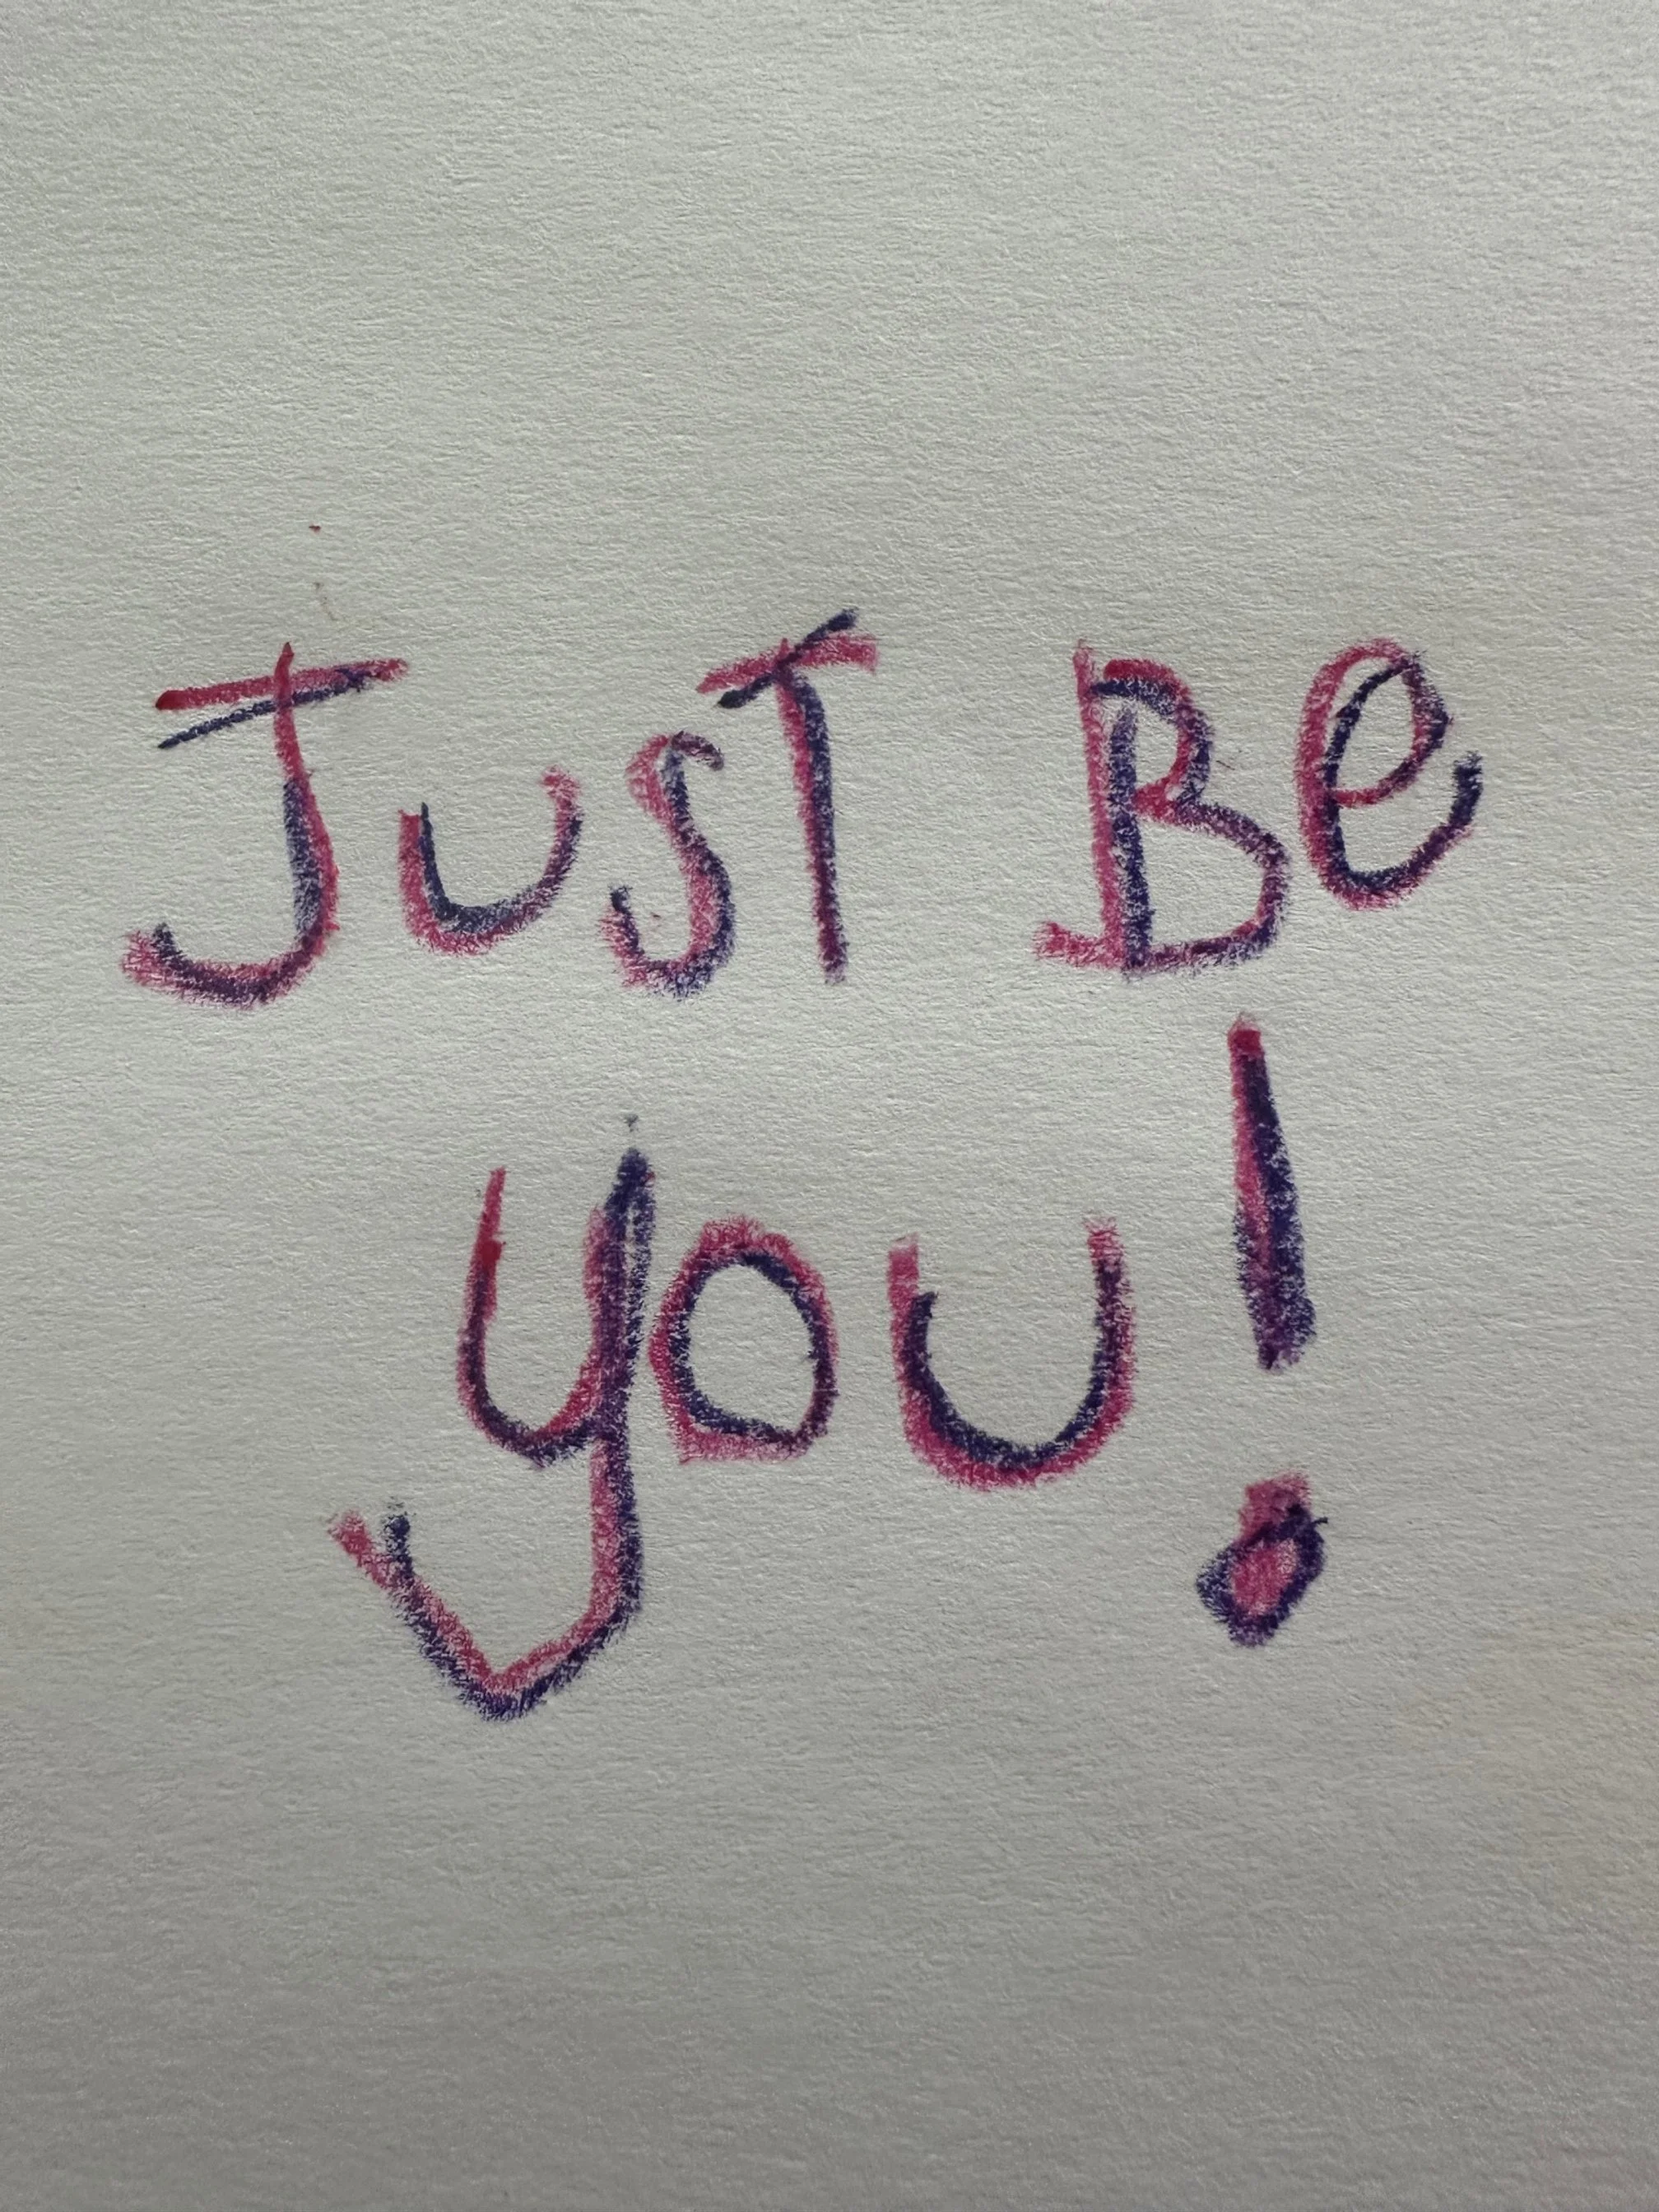 JusT Be
you!